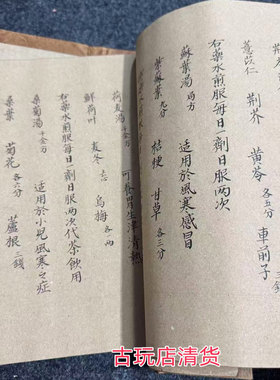 荊芥 黃芩 各五分 車前子 三錢
薏苡仁
右藥水煎服每日一劑日服兩次
蘇葉湯 局方 适用於風寒感冒
紫蘇葉 九分 桔梗 甘草 各三分
荷麦湯 千金方 可补胃生津清熱
鮮荷叶 麦冬 烏梅 各一两
右藥水煎服每日一劑日服两次代茶飲用
桑菊湯 千金方 适用於小兒風寒之症
桑葉 菊花 各六分 蘆根 三錢
古玩店清货